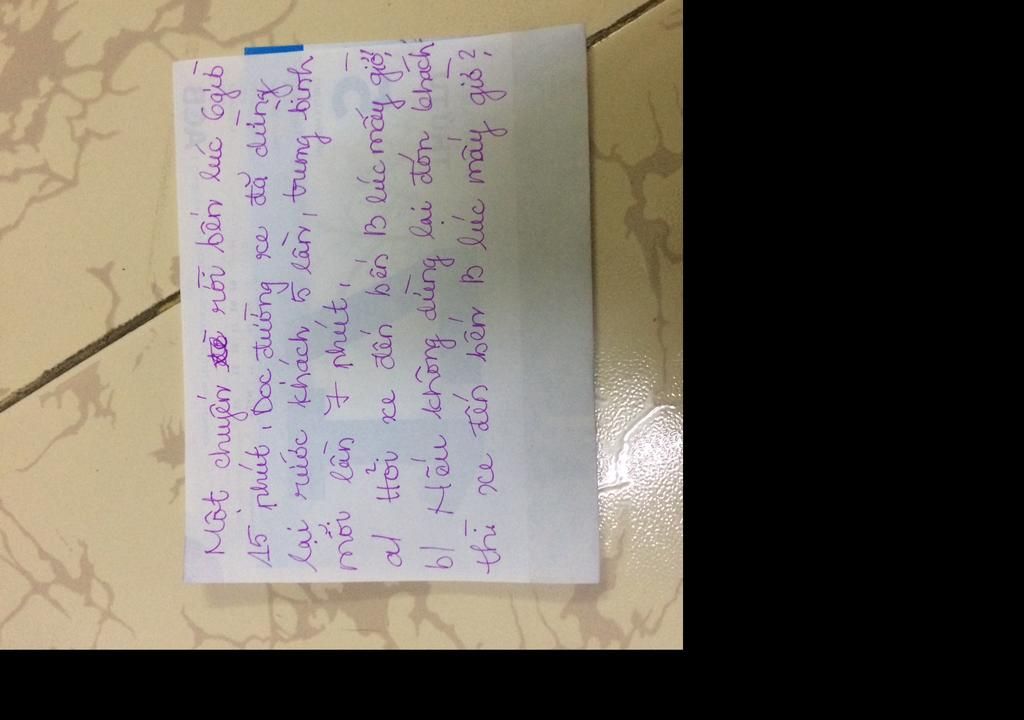 Một chuyến rời bến lúc 6giờ
15 phút, Dọc đường xe đã dừng
lại rước khách 5 lần, trung bình
mỗi lần 7 phút,
a/ Hỏi xe đến bến B lúc mấy giờ?
b/ Nếu không dừng lại đón khách
thì xe đến bến B lúc mấy giờ?